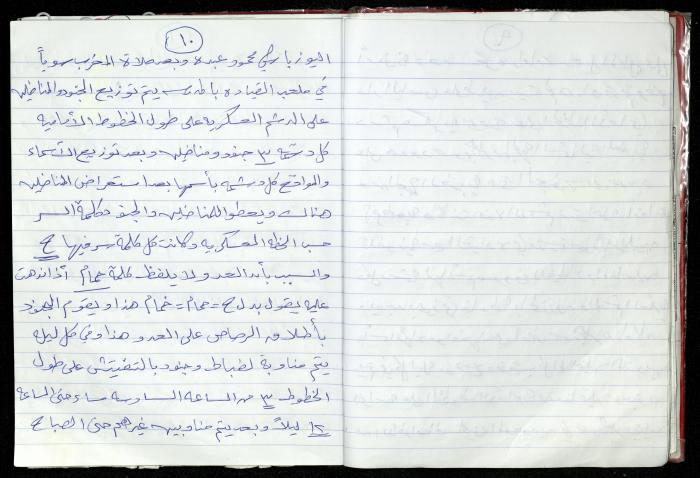 ١٠
اليوزباشي محمود عبده وبعد صلاة المغرب سوياً
في ملعب القياده بالمدرسه يتم توزيع الجنود والمناضلين
على الدشم العسكريه على طول الخطوط الأماميه
كل دشمه ٣ جنود ومناضلين وبعد توزيع الأسماء
والمواقع كل دشمه بأسمها بعد استعراض المناضلين
هناك ويعطوا للمناضلين والجنود كلمة السر
حسب الخطه العسكريه وكانت كل كلمة سر فيها ح
والسبب بأن العدو لا يلفظ كلمة حمام أذا
عليه يقول بدل ح = حمام = خمام هذا ويقوم الجنود
بأطلاق الرصاص على العدو هذا وفي كل ليله
يتم مناوبة لضباط وجنود بالتفتيش على طول
الخطوط ٣ من الساعه السادسه مساء حتى الساعه
١٢ ليلاً وبعد يتم مناوبين غيرهم حتى الصباح
٩